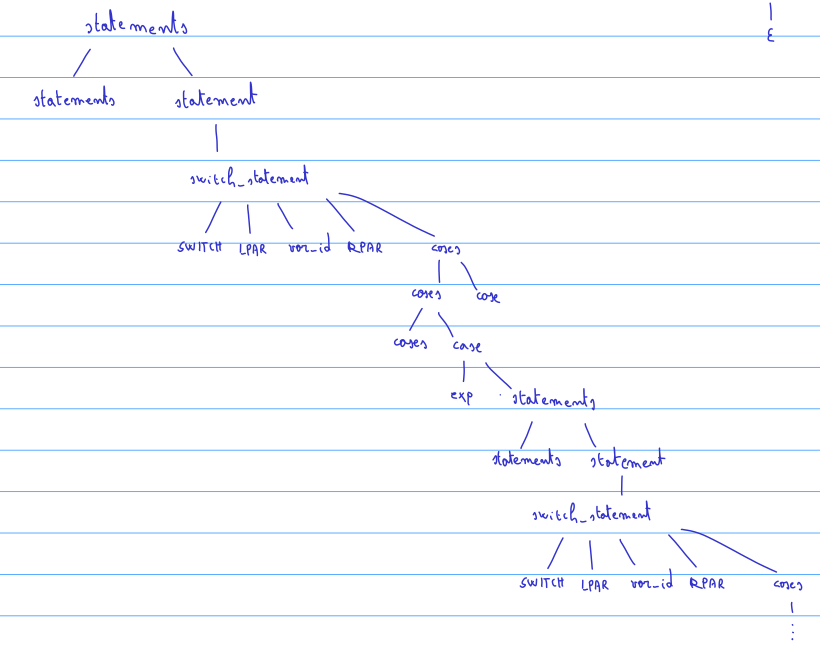 statements
ε
statements statement
switch_statement
SWITCH LPAR var_id RPAR cases
cases case
cases case
exp statements
statements statement
switch_statement
SWITCH LPAR var_id RPAR cases
⋮